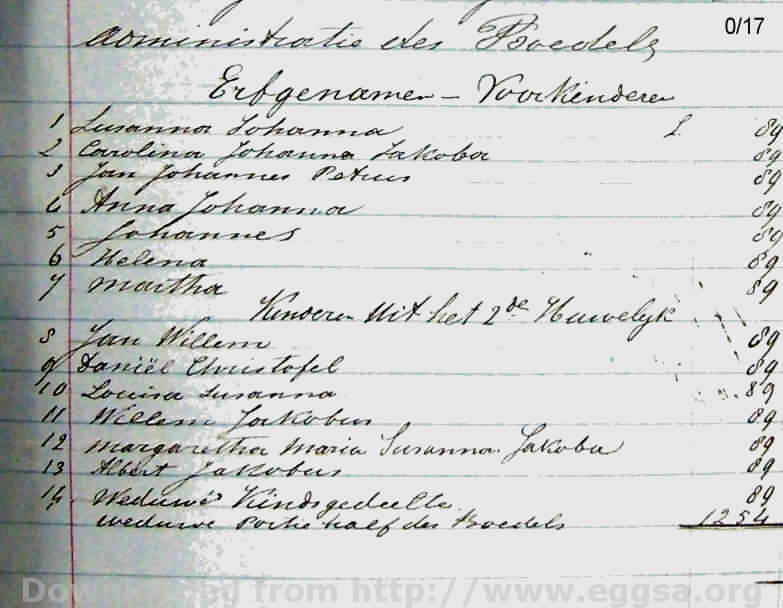 0/17
administratie des Boedels
Erfgenamen - Voorkinderen
1 Susanna Johanna £ 89
2 Carolina Johanna Jakoba 89
3 Jan Johannes Petrus 89
4 Anna Johanna 89
5 Johannes 89
6 Helena 89
7 Martha 89
Kinderen Uit het 2de Huwelyk
8 Jan Willem 89
9 Daniël Christofel 89
10 Louisa Susanna 89
11 Willem Jakobus 89
12 Margaretha Maria Susanna Jakoba 89
13 Albert Jakobus 89
14 Weduwe Kindsgedeelte 89
weduwe Portie half des Boedels 1254
Downloaded from http://www.eggsa.org